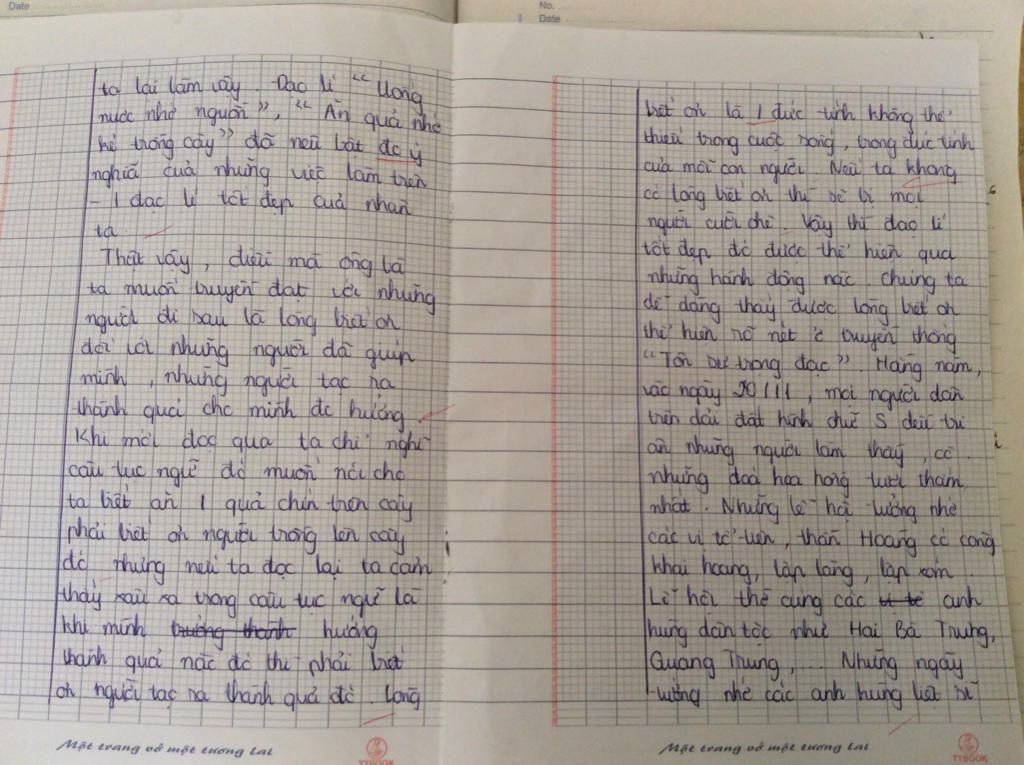 Date
No.
Date
ta lại làm vậy. Đạo lí "Uống
nước nhớ nguồn", "Ăn quả nhớ
kẻ trồng cây" đã nêu bật đc ý
nghĩa của những việc làm trên
- 1 đạo lí tốt đẹp của nhân
ta
Thật vậy, điều mà ông bà
ta muốn truyền đạt với những
người đi sau là lòng biết ơn
đối với những người đã giúp
mình, những người tạc ra
thành quả cho mình đc hưởng
Khi mới đọc qua ta chỉ nghĩ
câu tục ngữ đó muốn nói cho
ta biết ăn 1 quả chín trên cây
phải biết ơn người trồng lên cây
đó nhưng nếu ta đọc lại ta cảm
thấy sâu xa trong câu tục ngữ là
khi mình trưởng thành hưởng
thành quả nào đó thì phải biết
ơn người tạc ra thành quả đó. Lòng
Một trang vở một tương lai
TTBOOK
biết ơn là 1 đức tính không thể
thiếu trong cuộc sống, trong đức tính
của mỗi con người. Nếu ta không
có lòng biết ơn thì sẽ bị mọi
người cười chê. Vậy thì đạo lí
tốt đẹp đó được thể hiện qua
những hành động nào. chúng ta
dễ dàng thấy được lòng biết ơn
thể hiện rõ nét ở truyền thống
"Tôn sư trọng đạo". Hằng năm,
vào ngày 20/11, mọi người dân
trên dải đất hình chữ S đều tri
ân những người làm thầy, cô.
những đoá hoa hồng tươi thắm
nhất. Những lễ hội tưởng nhớ
các vị tổ tiên, thần Hoàng có công
khai hoang, lập làng, lập xóm
Lễ hội thờ cúng các vị tổ anh
hùng dân tộc như Hai Bà Trưng,
Quang Trung,... Những ngày
tưởng nhớ các anh hùng liệt sĩ
Một trang vở một tương lai
TTBOOK